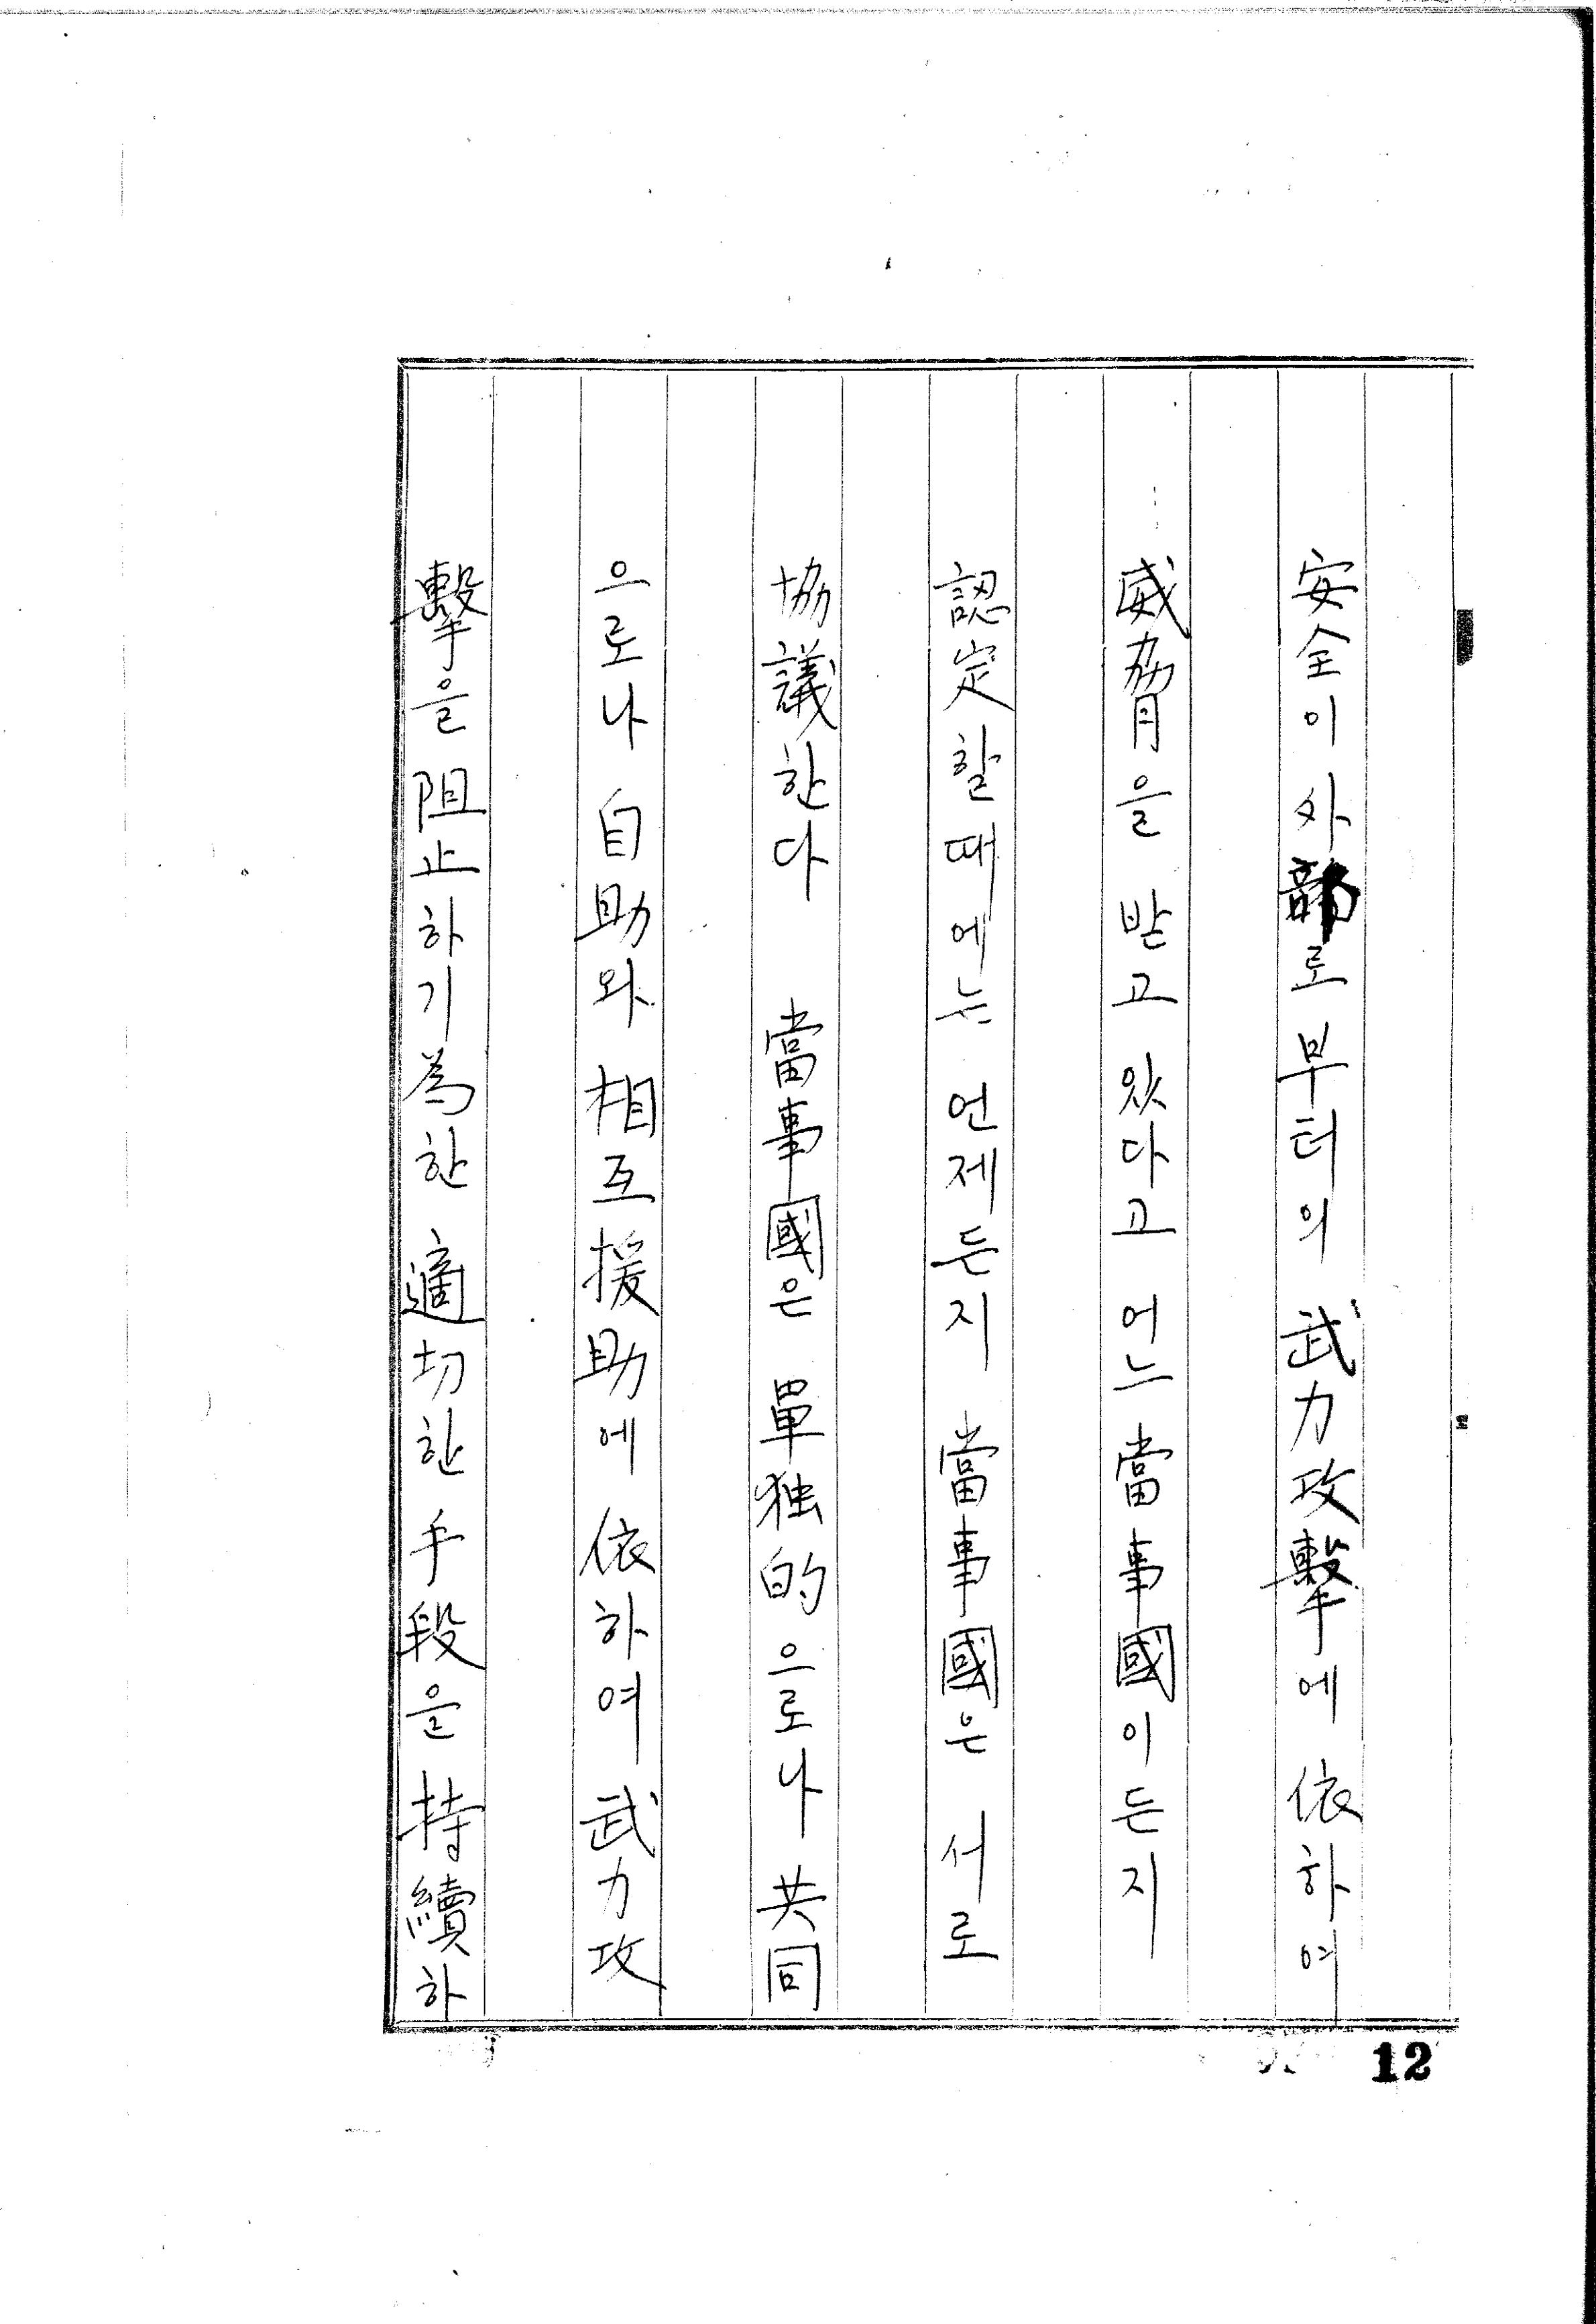 安全이 外部로부터의 武力攻擊에 依하여
威脅을 받고 있다고 어느 當事國이든지
認定할 때에는 언제든지 當事國은 서로
協議한다 當事國은 單独的으로나 共同
으로나 自助와 相互援助에 依하여 武力攻
擊을 阻止하기 為한 適切한 手段을 持續하
12